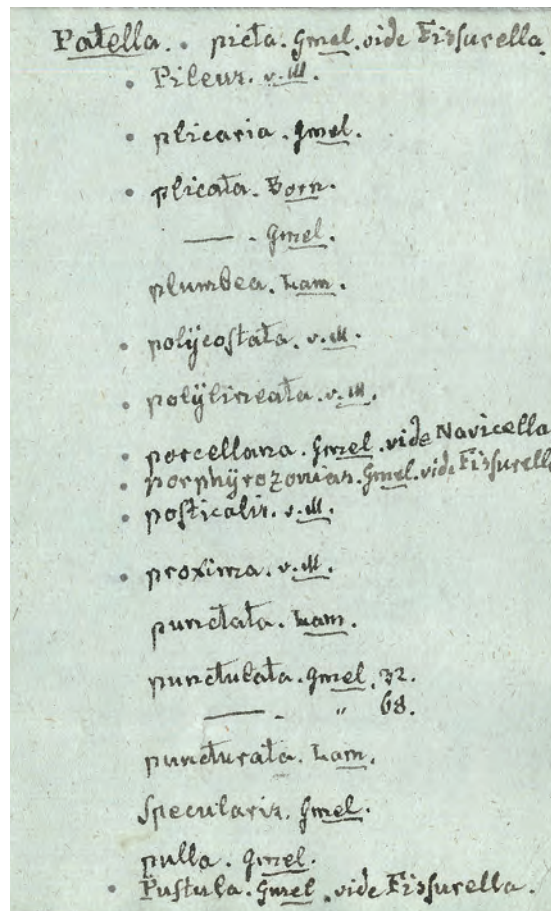 Patella. • picta. Gmel. vide Fissurella.
• Pileus. v. M.
• plicaria. Gmel.
• plicata. Born.
— . Gmel.
plumbea. Lam.
• polÿcostata. v. M.
• polÿlineata. v. M.
• porcellana. Gmel. vide Navicella
• porphÿrozonias. Gmel. vide Fissurella
• posticalis. v. M.
• proxima. v. M.
punctata. Lam.
punctulata. Gmel. 32.
— . " 68.
puncturata. Lam.
specularis. Gmel.
pulla. Gmel.
• Pustula. Gmel. vide Fissurella.